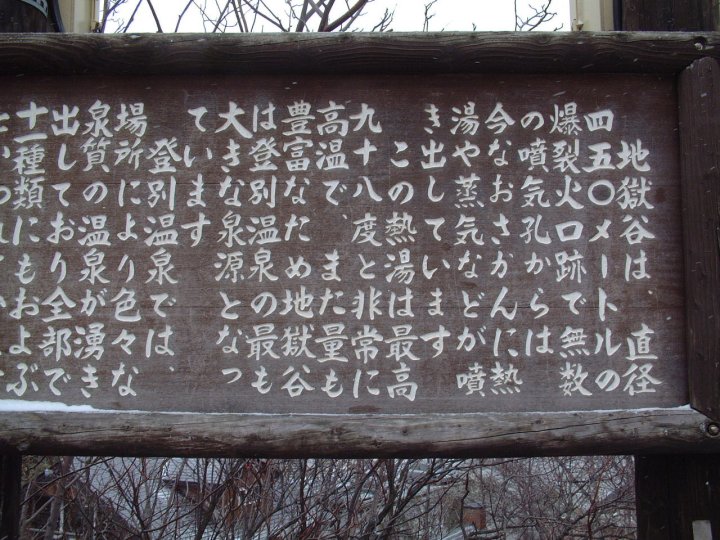 地獄谷は、直径
四五〇メートルの
爆裂火口跡で無数
の噴気孔からは
今なおさかんに熱
湯や蒸気などが噴
き出しています
この熱湯は最高
九十八度と非常に
高温で、また量も
豊富なため地獄谷
は登別温泉の最も
大きな泉源となっ
ています
登別温泉では、
場所により色々な
泉質の温泉が湧き
出しており全部で
十一種類にもおよぶ